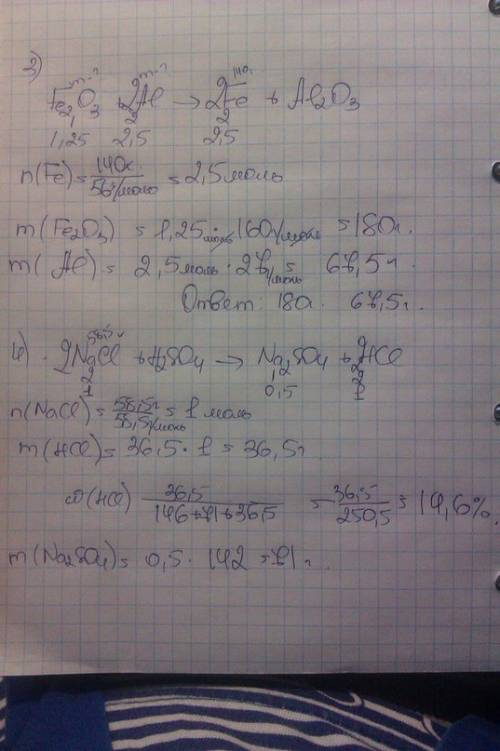 3)
m-? m-? 140г
Fe₂O₃ + 2Al → 2Fe + Al₂O₃
1 2 2
1,25 2,5 2,5
n(Fe) = 140г / 56г/моль = 2,5 моль
m(Fe₂O₃) = 1,25 моль · 160г/моль = 180г.
m(Al) = 2,5 моль · 27г/моль = 67,5 г
Ответ: 180г. 67,5г.
4) 58,5 г
2NaCl + H₂SO₄ → Na₂SO₄ + 2HCl
2 1 2
1 0,5 1
n(NaCl) = 58,5г / 58,5г/моль = 1 моль
m(HCl) = 36,5 · 1 = 36,5г
ω(HCl) 36,5 / 146+71+36,5 = 36,5 / 250,5 = 14,6%
m(Na₂SO₄) = 0,5 · 142 = 71г.